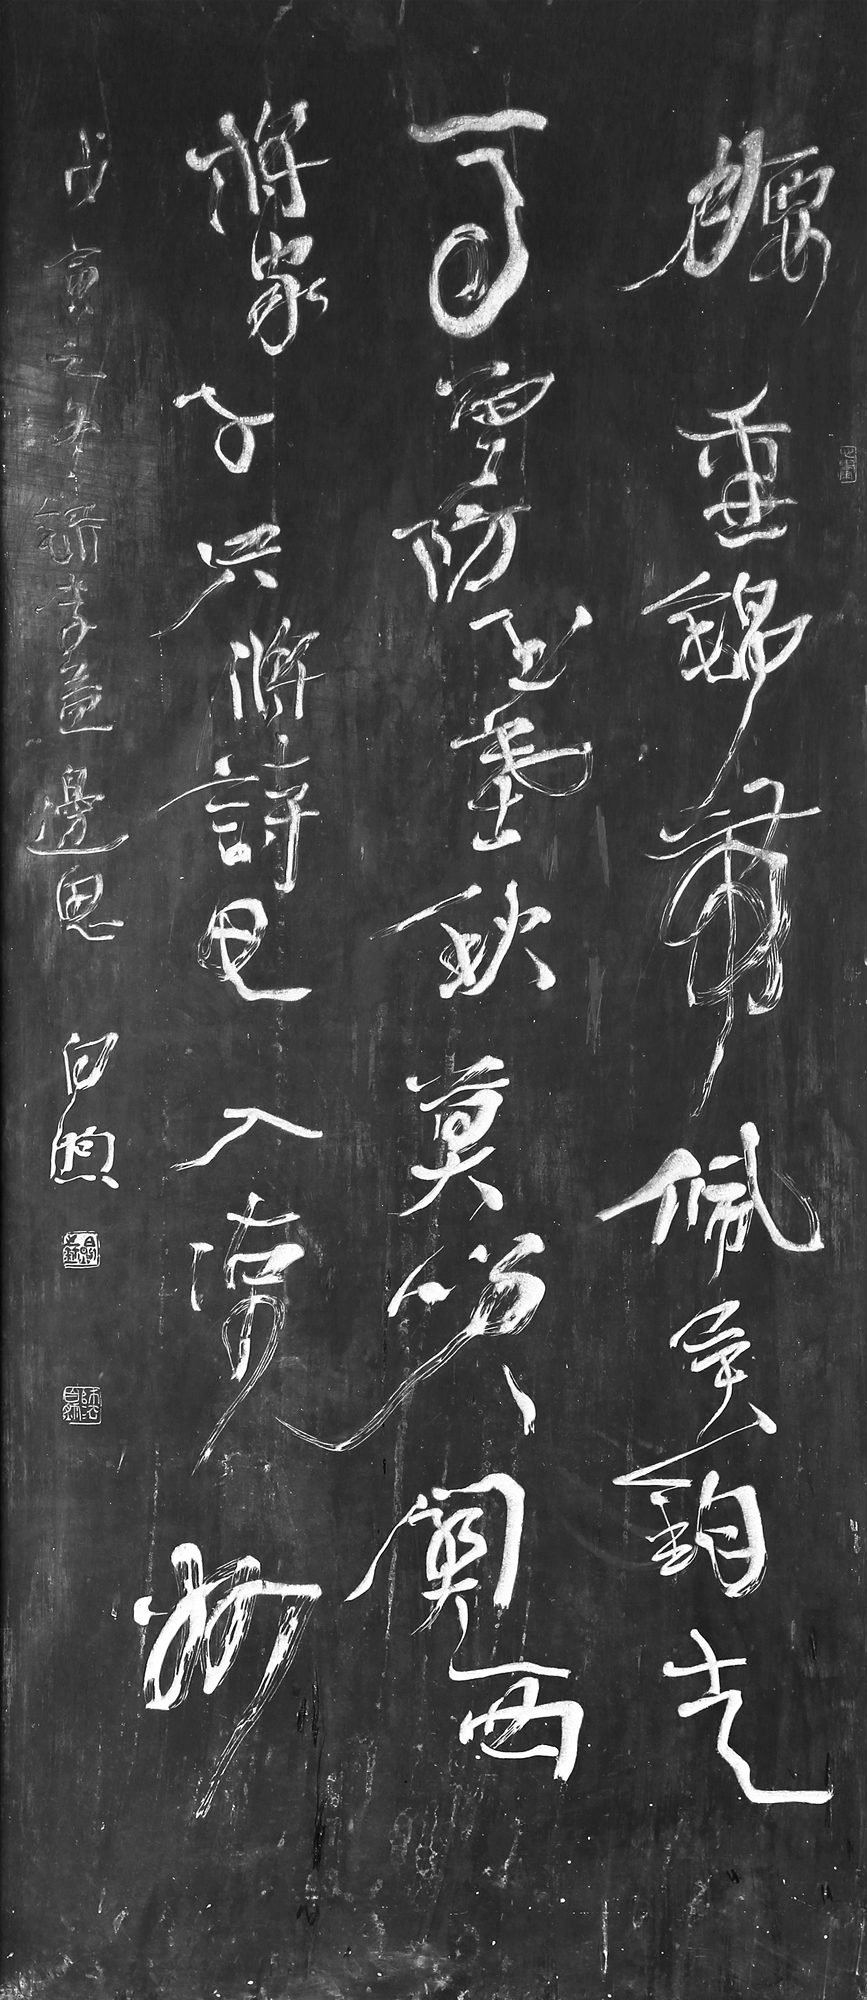 腰垂錦帶佩吳鉤走
馬曾防玉塞秋莫笑關西
將家子只將詩思入凉州
戊寅之冬李益邊思 白煦
師法自然